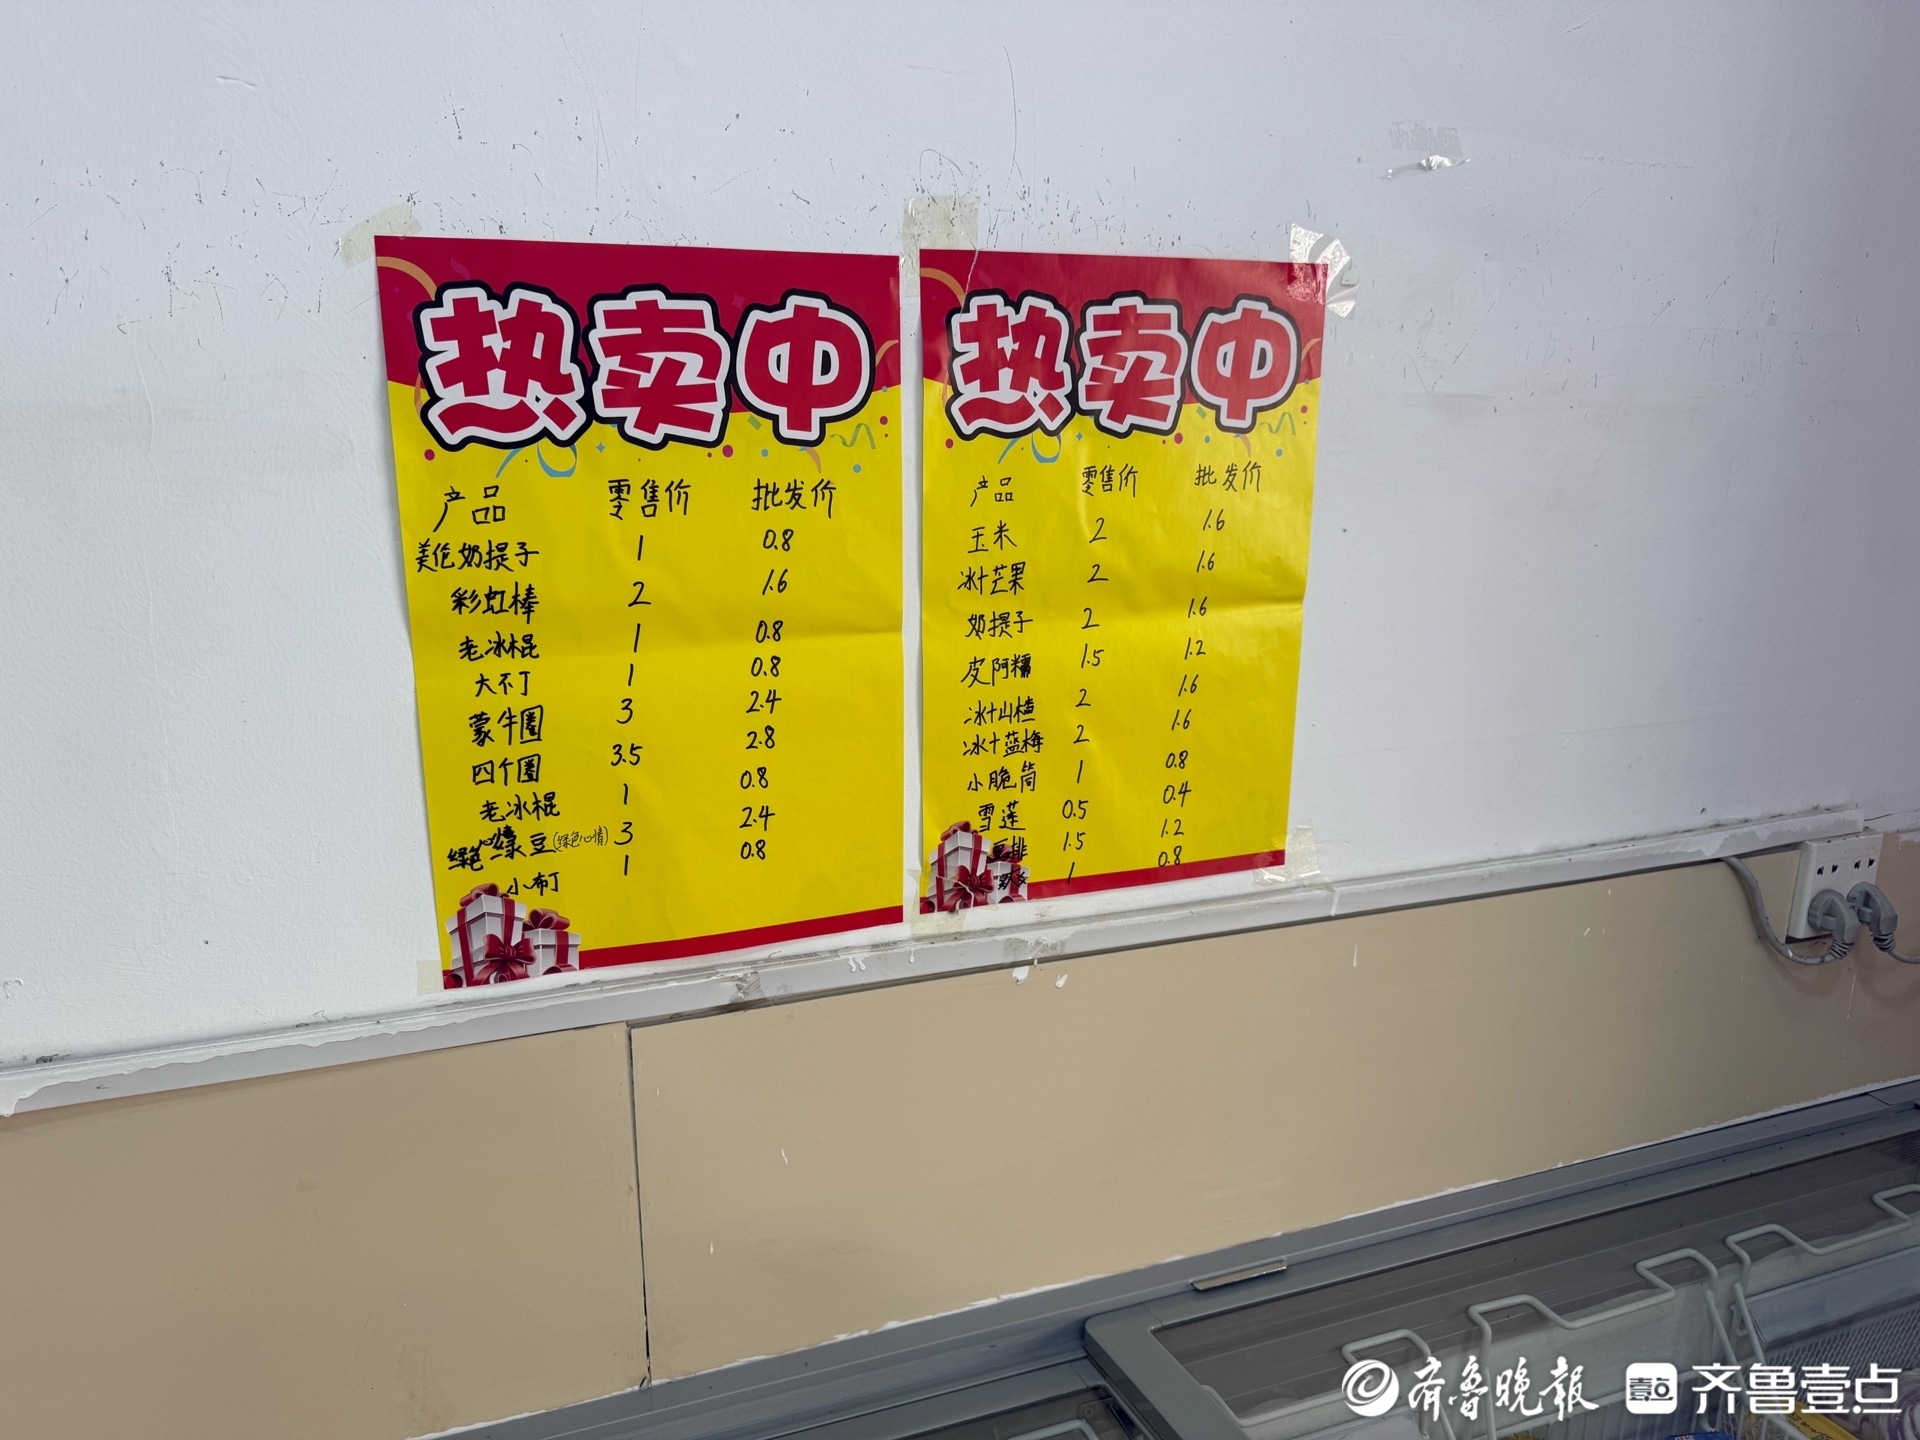 热卖中
产品 零售价 批发价
美伦奶提子 1 0.8
彩虹棒 2 1.6
老冰棍 1 0.8
大布丁 1 0.8
蒙牛圈 3 2.4
四个圈 3.5 2.8
老冰棍 1 0.8
绿色心情绿豆(绿色心情) 3 2.4
小布丁 1 0.8
热卖中
产品 零售价 批发价
玉米 2 1.6
冰+芒果 2 1.6
奶提子 2 1.6
皮阿糯 1.5 1.2
冰+山楂 2 1.6
冰+蓝梅 2 1.6
小脆筒 1 0.8
雪莲 0.5 0.4
排 1.5 1.2
1 0.8
齐鲁晚报 壹点 齐鲁壹点